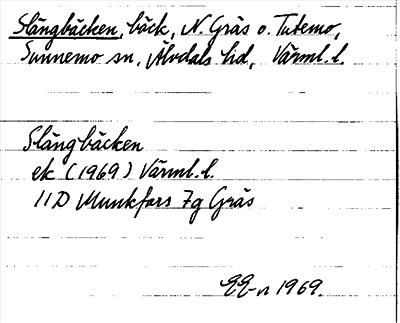 Slängbäcken, bäck, N. Gräs o. Tutemo,
Sunnemo sn, Älvdals hd, Värml. l.
Slängbäcken
ek (1969) Värml. l.
11D Munkfors 7g Gräs
1969.